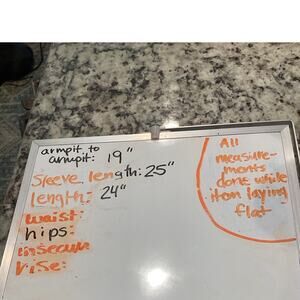 armpit to
armpit: 19"
Sleeve length: 25"
length: 24"
waist:
hips:
inseam
rise:
All
measure-
ments
done while
item laying
flat